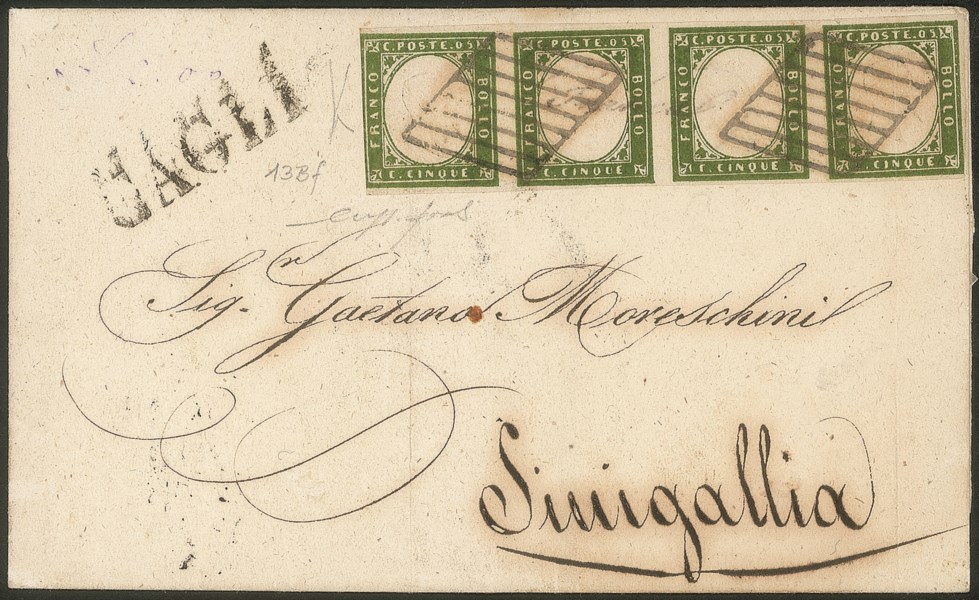 CAGLI
C. POSTE. 05 C. POSTE. 05 C. POSTE. 05 C. POSTE. 05
FRANCO BOLLO FRANCO BOLLO FRANCO BOLLO FRANCO BOLLO
C. CINQUE C. CINQUE C. CINQUE C. CINQUE
13Bf
Sig.r Gaetano Moreschini
Sinigallia